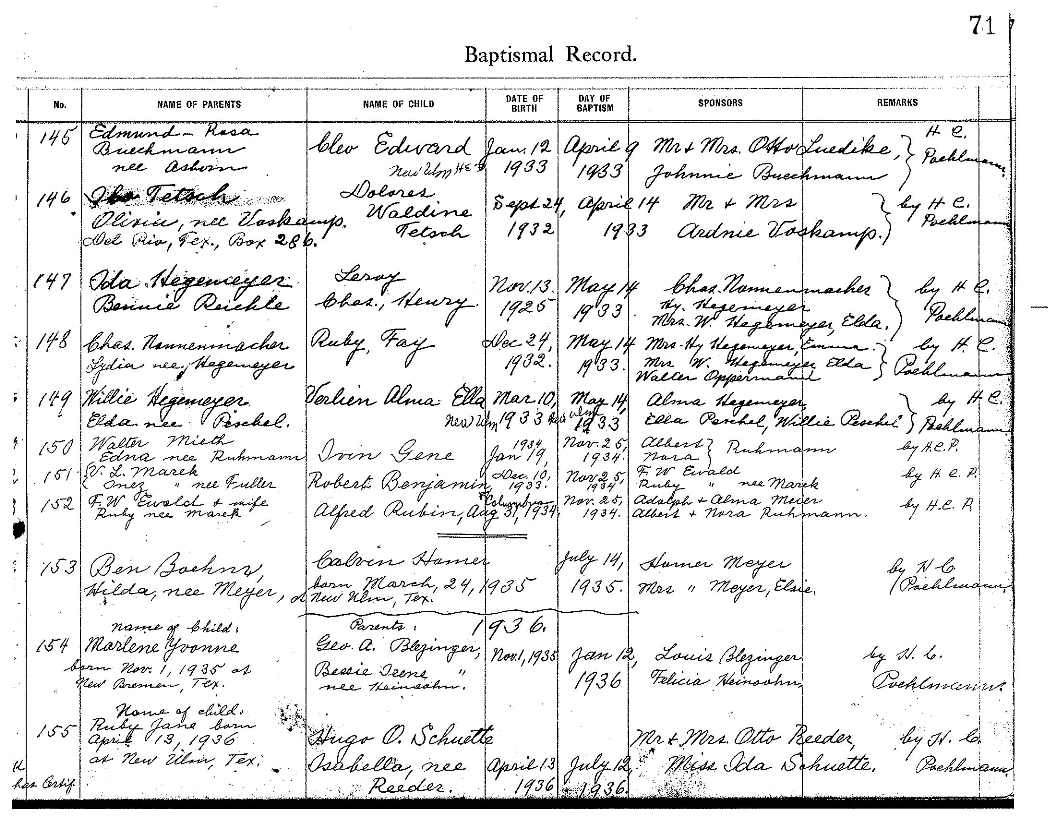 71
Baptismal Record.
No. NAME OF PARENTS NAME OF CHILD DATE OF BIRTH DAY OF BAPTISM SPONSORS REMARKS
145 Edmund – Rosa Cleo Edward Jan. 12 April 9 Mr & Mrs. Otto Luedike, H C.
Buechmann New Ulm 1933 1933 Johnnie Buechmann Poehlmann
nee
146 Tetsch Dolores Sept 24, April 14 Mr & Mrs by H C.
Olivia, nee Voskamp. Waldine 1932 1933 Ardnie Voskamp. Poehlmann
Del Rio, Tex., Box 286. Tetsch
147 Ida Hegemeyer Leroy Nov. 13. May 14 Chas. Nonnenmacher by H C.
Bennie Reichle Chas., Henry 1925 1933 Hy. Hegemeyer Poehlmann
Mrs. W. Hegemeyer, Elda.
148 Chas. Nonnenmacher Ruby, Fay Dec 24, May 14 Mrs. Hy Hegemeyer, Emma. by H C.
Lydia nee, Hegemeyer 1932. 1933. Mrs W. Hegemeyer Elda Poehlmann
Walter Oppermann
149 Willie Hegemeyer Verlien Alma Ella Mar 10, May 14, Alma Hegemeyer, by H C.
Elda nee Peschel. New Ulm 1933 New Ulm 1933 Ella Peschel, Willie Peschel Poehlmann
150 Walter Mieth Ivin Gene 1934 Nov. 25, Albert Ruhmann by H.C.P.
Edna nee Ruhmann Jan 19, 1934. Nora
151 V. L. Marek Robert Benjamin Dec. 10, Nov 25, F. W Ewald by H C P.
Inez " nee Fuller 1933. 1934 Ruby " nee Marek
152 F. W Ewald & wife Alfred Rubin, Columbus Nov. 25, Adolph & Alma Meier by H.C P.
Ruby nee Marek Aug 31, 1934. 1934. Albert & Nora Ruhmann.
153 Ben Boehnz, Calvin Homer July 14, Homer Meyer by H C
Hilda, nee Meyer, born March, 24, 1935 1935. Mrs " Meyer, Elsie. Poehlmann
New Ulm, Tex.
Name of Child. Parents. 1936.
154 Marlene Yvonne Geo. A. Blezinger, Nov. 1, 1935 Jan 12, Louis Blezinger by H. C.
born Nov. 1, 1935 at Bessie Irene " 1936 Felicia Heinsohn, Poehlmann.
New Bremen, Tex. nee Heinsohn.
Name of child.
155 Ruby Jane born Hugo O. Schuette Mr & Mrs Otto Reeder, by H. C.
April 13, 1936 Isabella, nee April 13 July 12, Miss Ida Schuette. Poehlmann
at New Ulm, Tex. Reeder. 1936 1936.
has Certif.